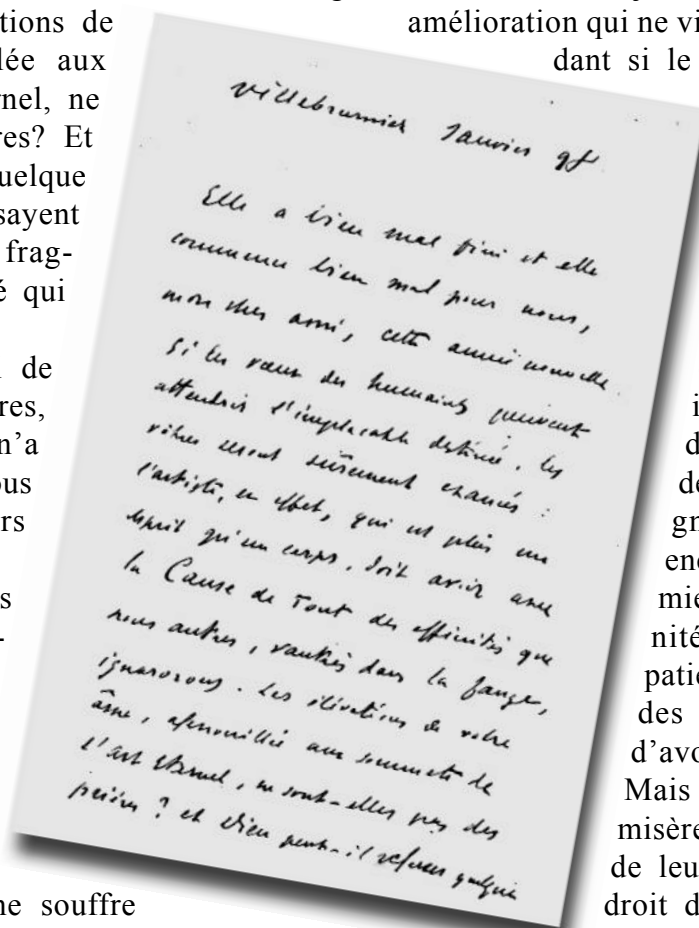 tions de
lée aux
rnel, ne
res? Et
uelque
sayent
frag-
é qui
de
res,
n'a
ous
rs
s
-
ne souffre
Villebrumier Janvier
Elle a bien mal fini et elle
commence bien mal pour nous,
mon cher ami, cette année nouvelle.
Si les vœux des humains peuvent
attendrir l'implacable destinée, les
vôtres seront sûrement exaucés :
l'artiste, en effet, qui est plus un
esprit qu'un corps, doit avoir avec
la Cause de Tout des affinités que
nous autres, vautrés dans la fange,
ignorons. Les élévations de votre
âme, agenouillée aux sommets de
l'art Eternel, ne sont-elles pas des
prières ? et Dieu peut-il refuser quelque
amélioration qui ne vi
dant si le
i
d
de
gn
enc
mie
nité
patie
des
d'avo
Mais
misère
de leu
droit d